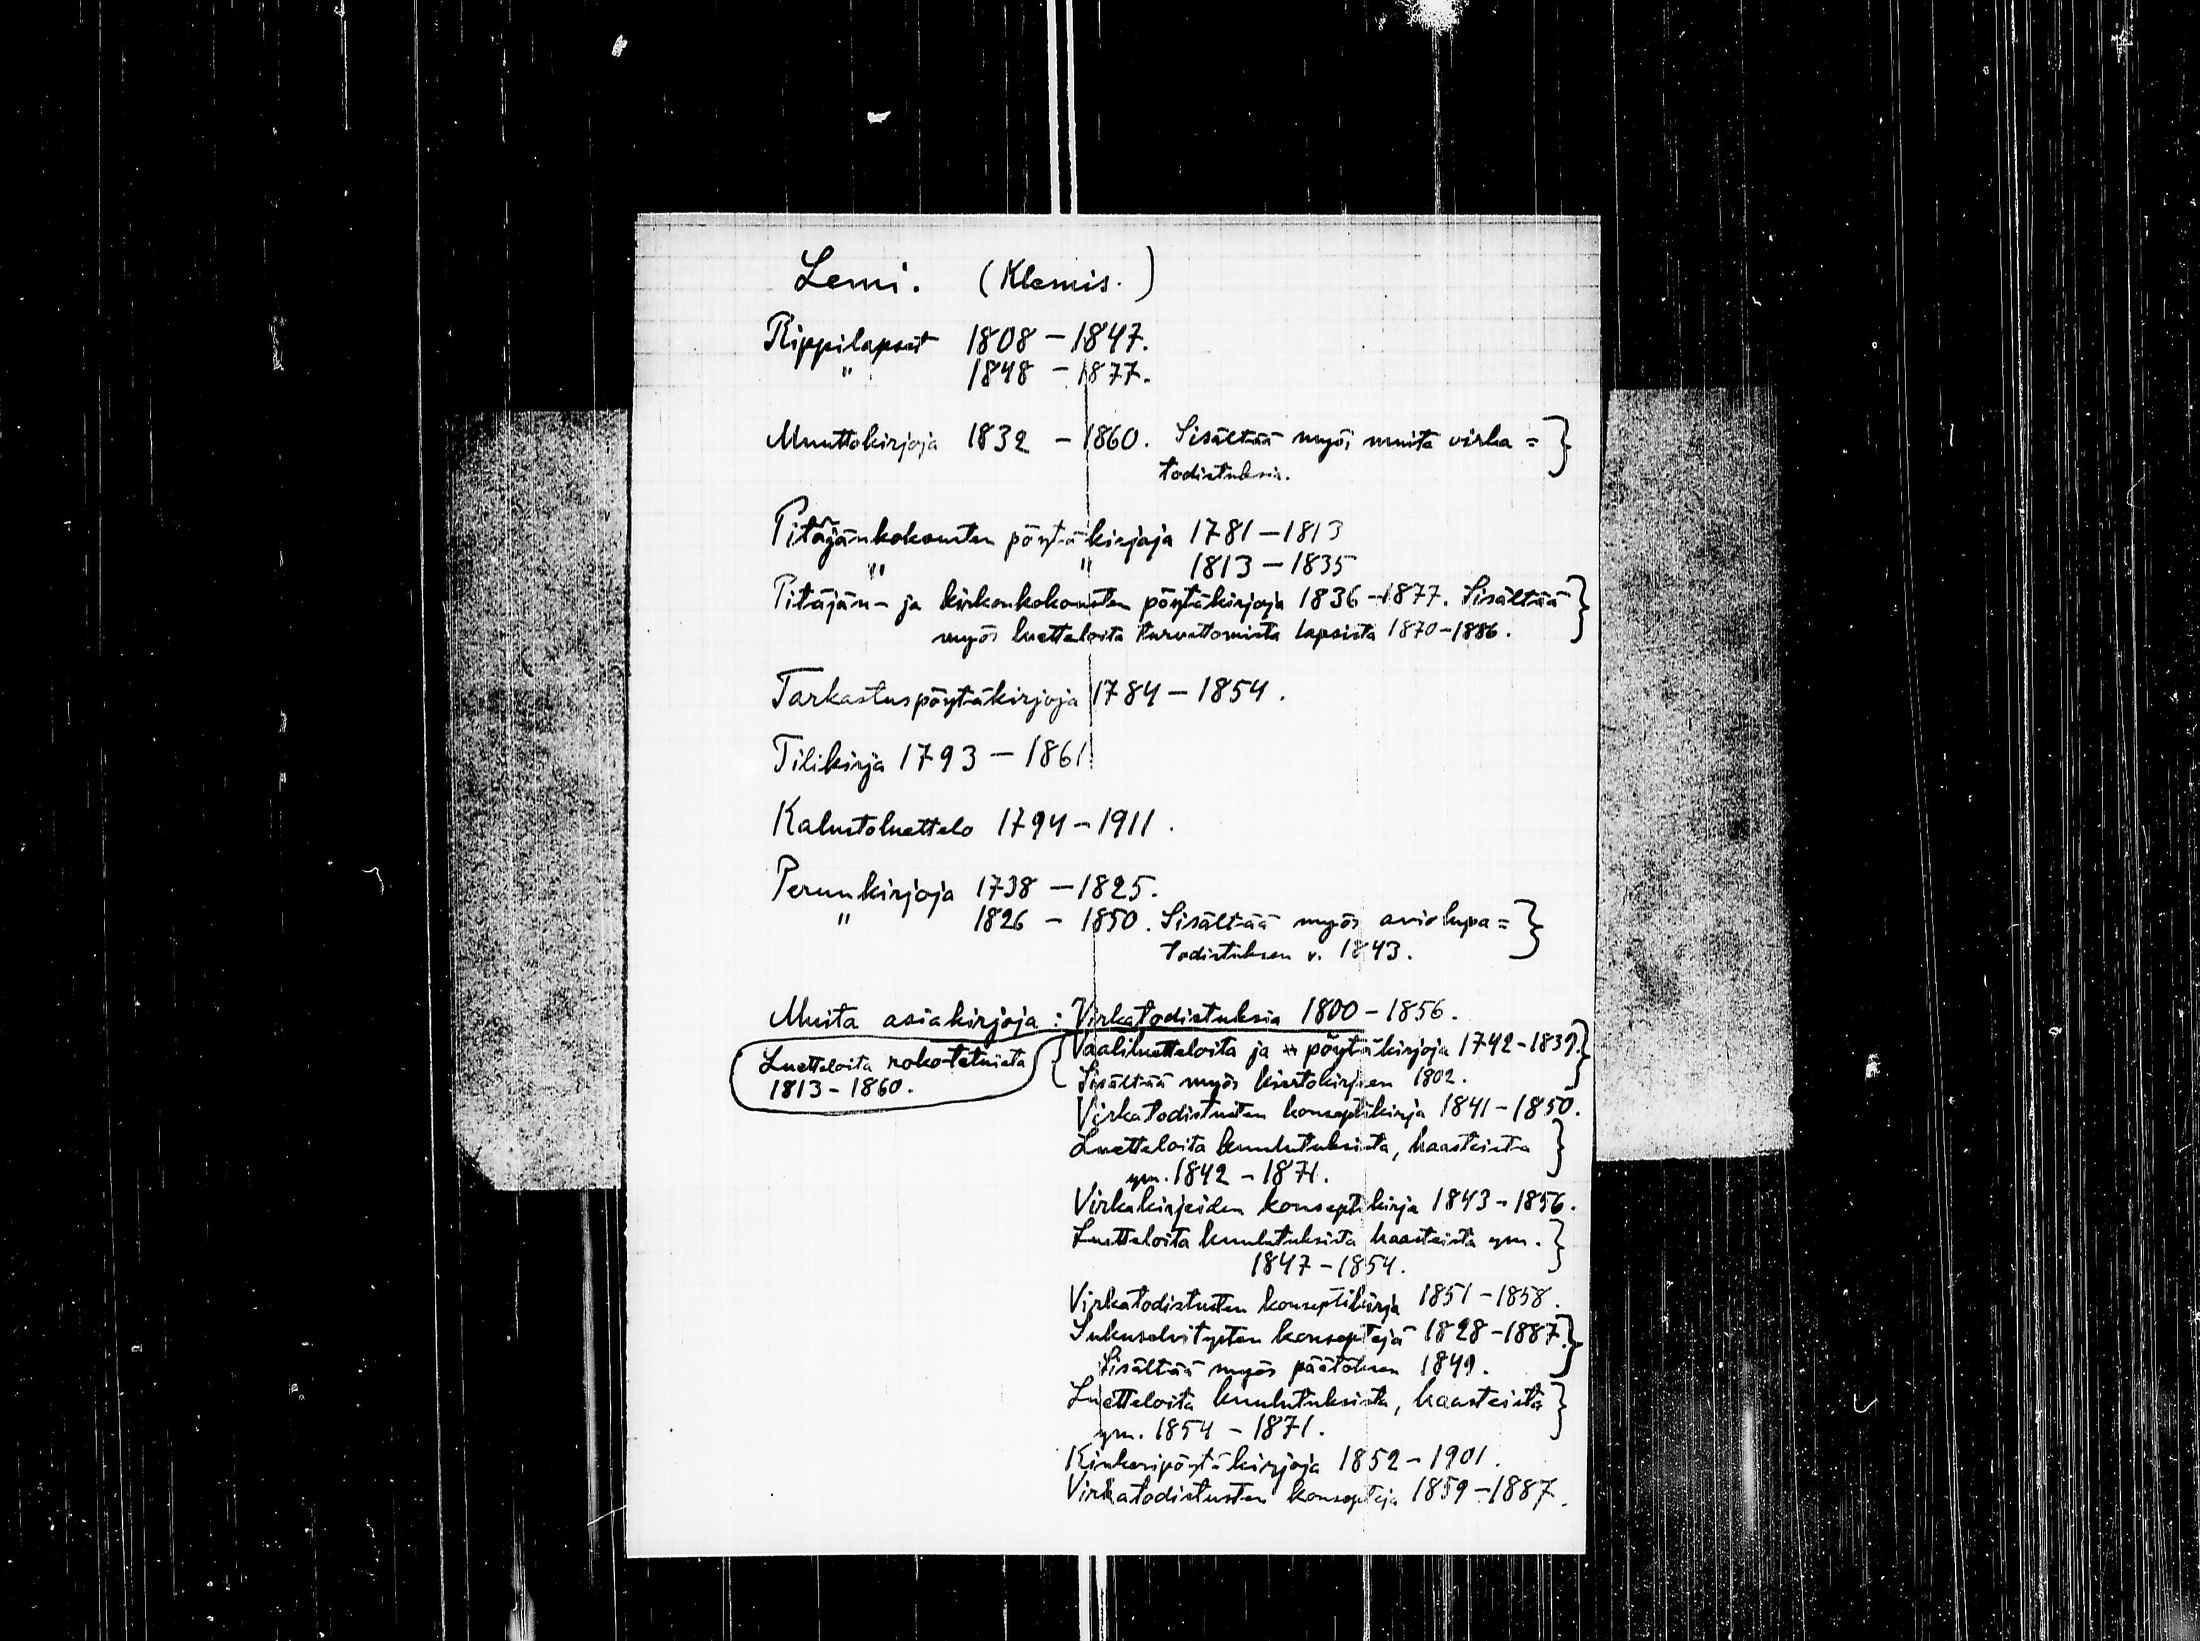 Lemi. (Klemis.)
Rippilapset 1808 – 1847.
" 1848 – 1877.
Muuttokirjoja 1832 – 1860. Sisältää myös muita virka= }
todistuksia.
Pitäjänkokousten pöytäkirjoja 1781 – 1813
" " 1813 – 1835
Pitäjän- ja kirkonkokousten pöytäkirjoja 1836 – 1877. Sisältää }
myös luetteloita turvattomista lapsista 1870 – 1886.
Tarkastuspöytäkirjoja 1784 – 1854.
Tilikirja 1793 – 1861.
Kalustoluettelo 1794 – 1911.
Perunkirjoja 1738 – 1825.
" 1826 – 1850. Sisältää myös aviolupa= }
todistuksen v. 1843.
Muita asiakirjoja: Virkatodistuksia 1800 – 1856.
Luetteloita rokotetuista
1813 – 1860.
{ Vaaliluetteloita ja " pöytäkirjoja 1742 – 1839. }
Sisältää myös kiertokirjeen 1802.
Virkatodistusten konseptikirja 1841 – 1850.
Luetteloita kuulutuksista, haasteista }
ym. 1842 – 1871.
Virkakirjeiden konseptikirja 1843 – 1856.
Luetteloita kuulutuksista haasteista ym. }
1847 – 1854.
Virkatodistusten konseptikirja 1851 – 1858.
Sukuselvitysten konsepteja 1828 – 1887. }
Sisältää myös päätöksen 1849.
Luetteloita kuulutuksista, haasteista }
ym. 1854 – 1871.
Kinkeripöytäkirjoja 1852 – 1901.
Virkatodistusten konsepteja 1859 – 1887.